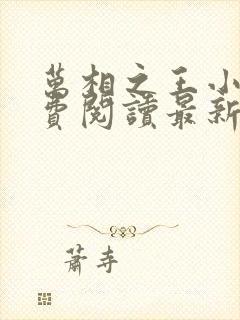 萬相之王小
費閱讀最新
蕭寺